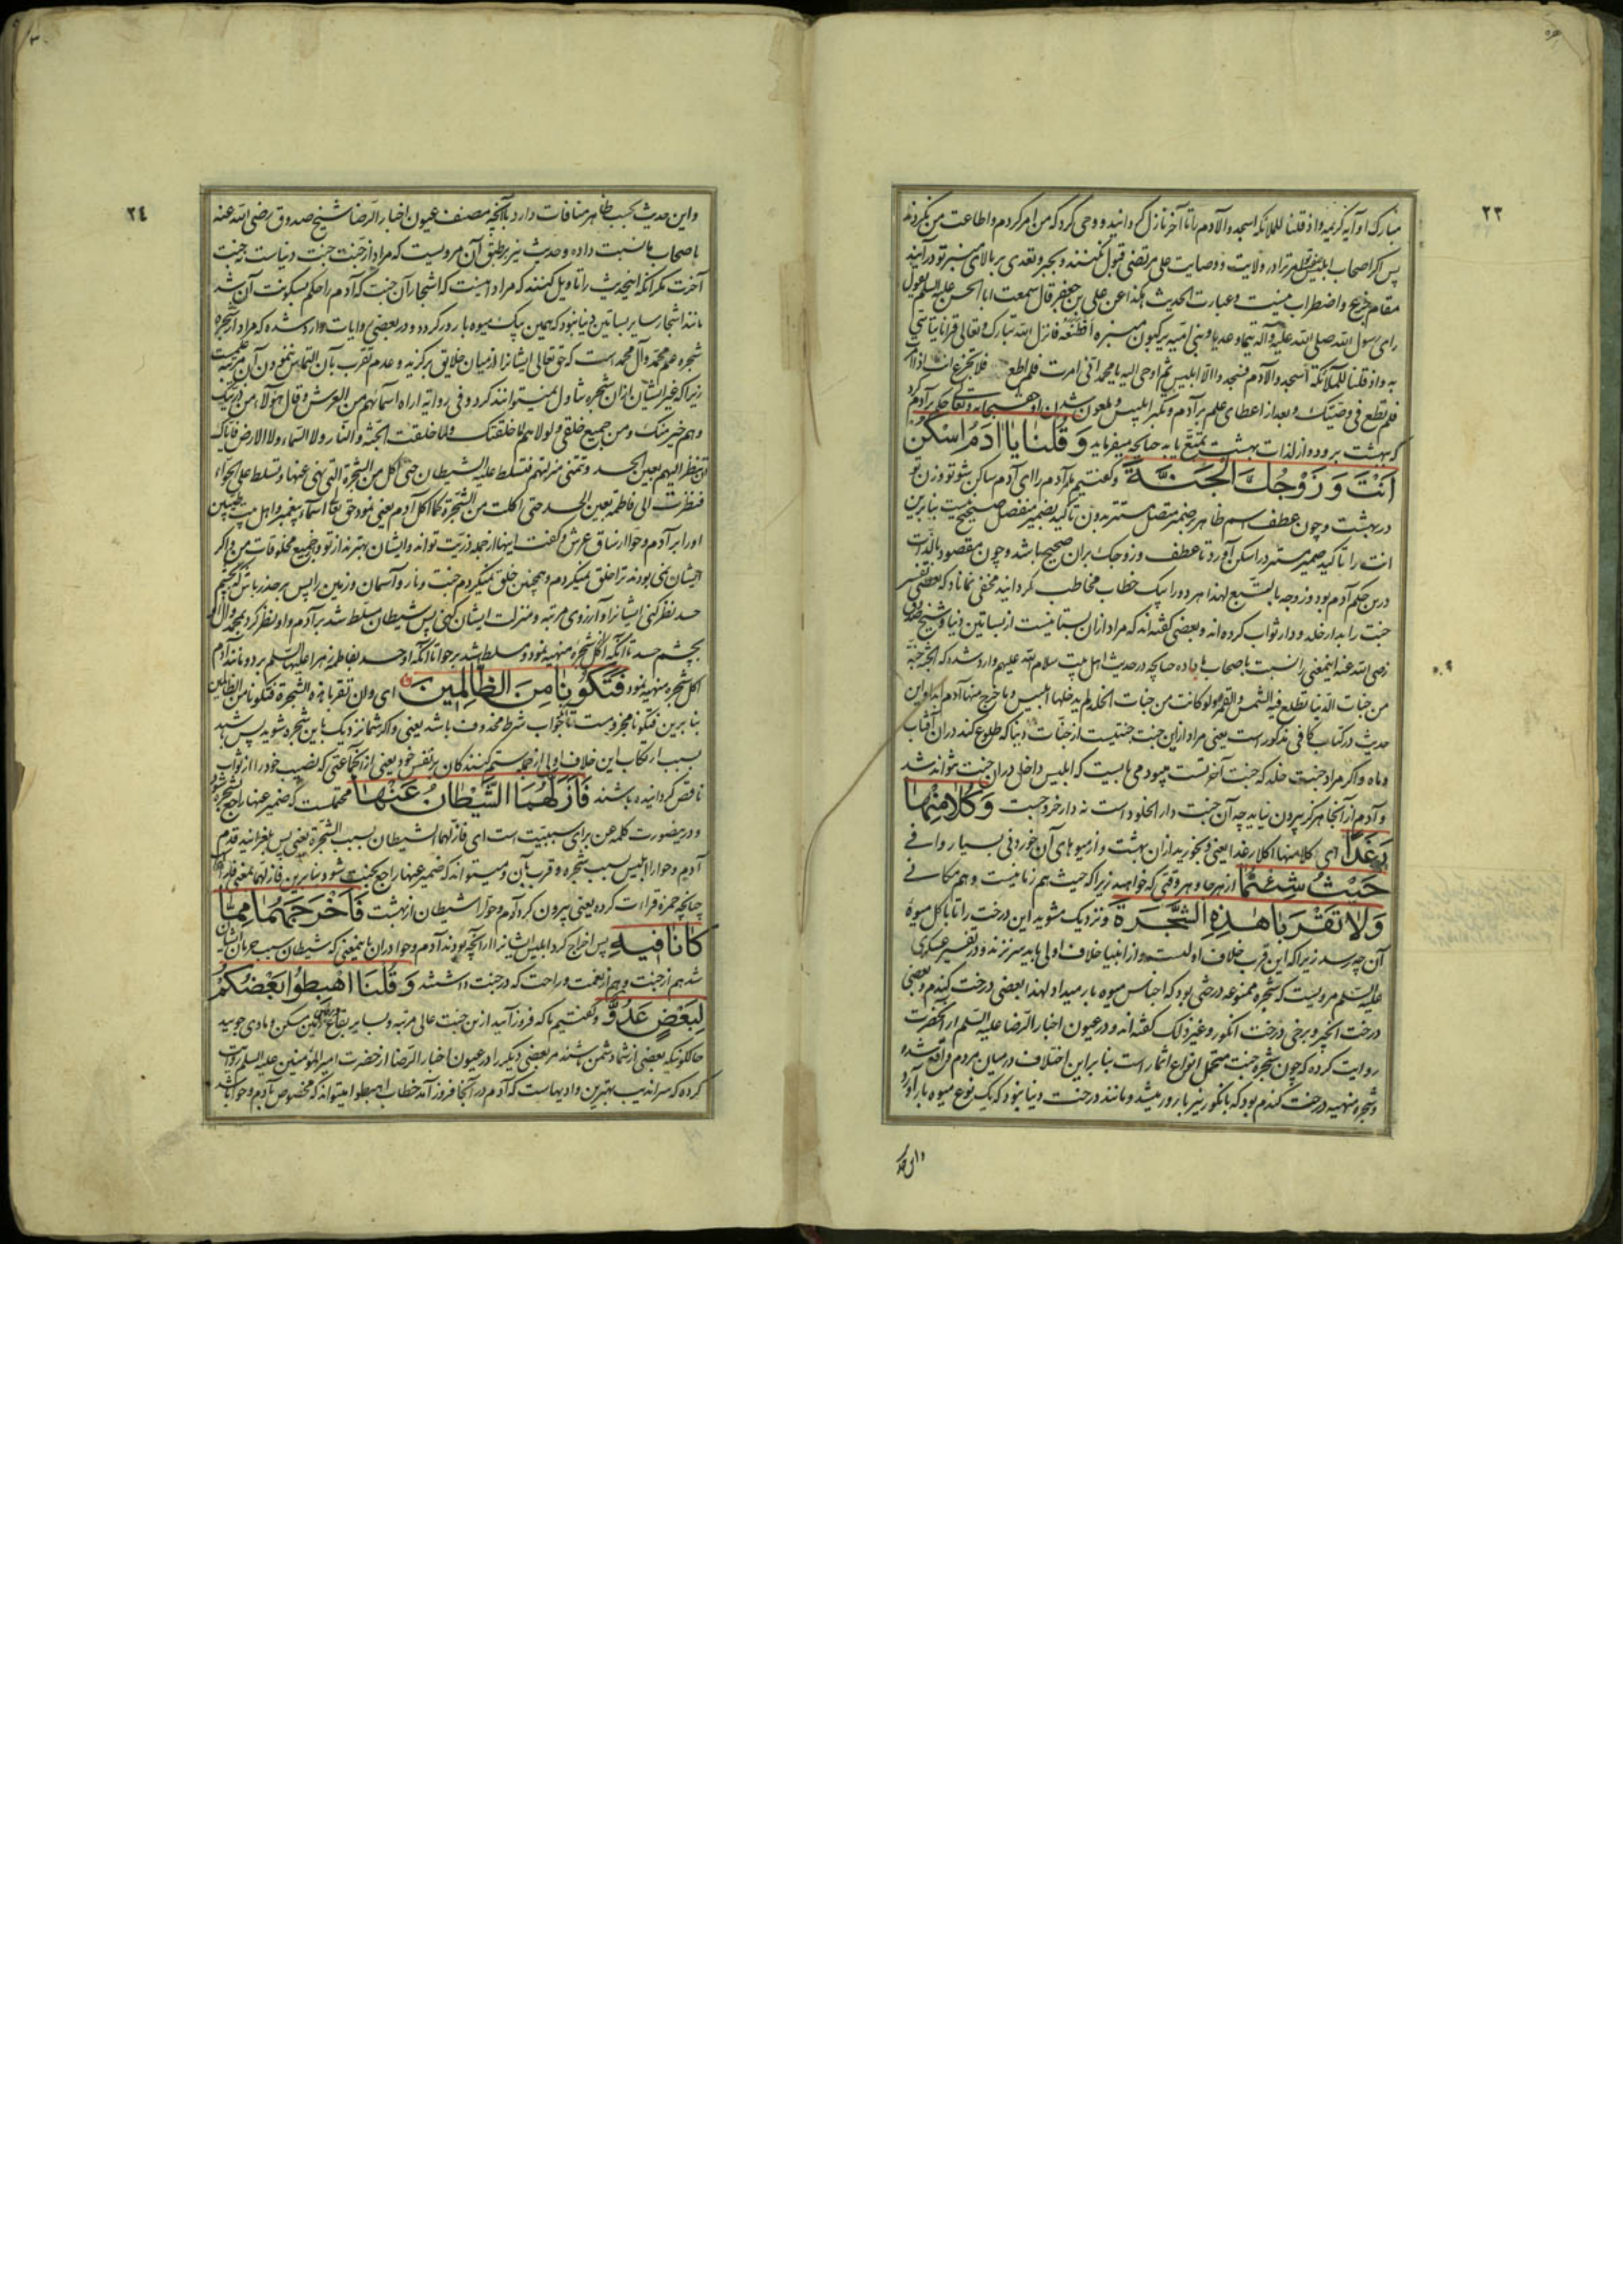 ٢٣
مبارک او آیه کریمه واذ قلنا للملائکه اسجدوا لآدم را تا آخر نازل گردانید و وحی کرد که من امر کردم و اطاعت من نکردند
پس اگر اصحاب ترا در ولایت و وصایت علی مرتضی قبول نکنند و بجبر و تعدی بر بالای منبر تو درآیند
مقام جزع و اضطراب نیست و عبارت الحدیث هکذا عن علی بن جعفر قال سمعت ابا الحسن علیه السلم یقول
رای رسول الله صلی الله علیه وآله تیما و عدیا و بنی امیه یرکبون منبره افظعه فانزل الله تبارک وتعالی قرآنا یتاسی
به واذ قلنا للملائکة اسجدوا لآدم فسجدوا الا ابلیس ثم اوحی الیه یا محمد انی امرت فلم اطع فلا تجزع انت اذا امرت
فلم تطع فی وصیتک و بعد از اعطای علم بر آدم و تکبر ابلیس و ملعون شدن او حق سبحانه وتعالی حکم بآدم کرد
که ببهشت برود و از لذات بهشت تمتع یابد چنانچه میفرماید وَقُلْنَا يَا آدَمُ اسْكُنْ
أَنْتَ وَزَوْجُكَ الْجَنَّةَ و گفتیم مر آدم را ای آدم ساکن شو تو و زن تو
در بهشت و چون عطف اسم ظاهر بر ضمیر متصل مستتر بدون تاکید بضمیر منفصل صحیح نیست بنابرین
انت را تاکید ضمیر مستتر در اسکن آورد تا عطف و زوجک بران صحیح باشد و چون مقصود بالذات
درین حکم آدم بود و زوجه بالتبع لهذا هر دو را بیک خطاب مخاطب گردانید مخفی نماناد که بعضی تفسیر
جنت را بدار خلد و دار ثواب کرده‌اند و بعضی گفته‌اند که مراد ازان بستانیست از بساتین دنیا و شیخ صدوق
رضی الله عنه اینمعنی را نسبت باصحاب ما داده چنانچه در حدیث اهل بیت سلام الله علیهم وارد شده که الجنة جنة
من جنات الدنیا تطلع فیه الشمس والقمر ولو کانت من جنات الخلد لم یدخلها ابلیس وما خرج منها آدم ابدا و این
حدیث در کتاب کافی مذکور است یعنی مراد ازین جنت جنتیست از جنات دنیا که طلوع کند دران آفتاب
و ماه و اگر مراد جنت خلد که جنت آخرتست میبود می بایست که ابلیس داخل دران جنت نتواند شد
و آدم از آنجا هرگز بیرون نیاید چه آن جنت دار الخلود است نه دار خروجست وَكُلَا مِنْهَا
رَغَدًا ای کلا منها اکلا رغدا یعنی و بخورید ازان بهشت و از میوهای آن خوردنی بسیار و وافی
حَيْثُ شِئْتُمَا از هر جا و هر وقتی که خواهید زیرا که حیث هم زمانیست و هم مکانی
وَلَا تَقْرَبَا هَذِهِ الشَّجَرَةَ و نزدیک مشوید این درخت را تا باکل میوهٔ
آن چه رسد زیرا که این قرب خلاف اولیست و از انبیا خلاف اولی باید سر نزند و در تفسیر عسکری
علیه السلم مرویست که شجره ممنوعه درختی بود که اجناس میوه بار میداد لهذا بعضی درخت گندم و بعضی
درخت انجیر و برخی درخت انگور و غیر ذلک گفته‌اند و در عیون اخبار الرضا علیه السلم از آنحضرت
روایت کرده که چون شجره جنت متحمل انواع اثمار است بنابراین اختلاف در میان مردم واقع شده
و شجره منهیه درخت گندم بود که بانگور نیز بارور میشد و مانند درخت دنیا نبود که یک نوع میوه بار آورد
٢٤
و این حدیث بحسب ظاهر منافات دارد با آنچه مصنف عیون اخبار الرضا شیخ صدوق رضی الله عنه
باصحاب ما نسبت داده و حدیث نیز بر طبق آن مرویست که مراد از جنت جنت دنیاست نه جنت
آخرت مگر آنکه اینحدیث را تاویل کنند که مراد اینست که اشجار آن جنت که آدم را حکم بسکونت آن شد
مانند اشجار سایر بساتین دنیا نبود که همین بیک میوه بارور گردد و در بعضی روایات وارد شده که مراد از شجره
شجره علم محمد و آل محمد است که حق تعالی ایشانرا از میان خلایق برگزیده و عدم تقرب بآن التماس ننمودن آن مرتبه
زیرا که غیر ایشان ازان شجره تناول نمیتوانند کرد و فی روایة اراه اسمائهم من العرش وقال هؤلاء من ذریتک
وهم خیر منک ومن جمیع خلقی ولولاهم لما خلقتک ولما خلقت الجنة والنار ولا السماء ولا الارض فایاک
ان تنظر الیهم بعین الحسد وتمنی منزلتهم فتسلط علیه الشیطان حتی اکل من الشجرة التی نهی عنها وتسلط علی الحواء
فنظرت الی فاطمة بعین الحسد حتی اکلت من الشجرة کما اکل آدم یعنی نمود حق تعالی اسماء پیغمبر و اهل بیت
او را بر آدم و حوا از ساق عرش و گفت اینها از جمله ذریت تواند و ایشان بهترند از تو و جمیع مخلوقات من و اگر
ایشان نمی بودند ترا خلق نمیکردم و همچنین خلق نمیکردم جنت و نار و آسمان و زمین را پس بر حذر باش که بچشم
حسد نظر کنی ایشانرا و آرزوی مرتبه و منزلت ایشان کنی پس شیطان مسلط شد بر آدم و او نظر کرد بمحمد وآل او
بچشم حسد تا آنکه اکل شجره منهیه نمود و مسلط شد بر حوا تا آنکه او حسد بفاطمه زهرا علیها السلم برد و مانند آدم
اکل شجره منهیه نمود فَتَكُونَا مِنَ الظَّالِمِينَ ای وان تقربا هذه الشجرة فتکونا من الظالمین
بنابرین فتکونا مجزومست تا جواب شرط محذوف باشد یعنی و اگر شما نزدیک باین شجره شوید پس باشید
بسبب ارتکاب این خلاف اولی از جمله ستم کنندکان بر نفس خود یعنی از آنجماعتی که نصیب خود را از ثواب
ناقص گردانیده باشند فَأَزَلَّهُمَا الشَّيْطَانُ عَنْهَا محتملست که ضمیر عنها راجع بشجره شود
و درینصورت کلمه عن برای سببیت است ای فازلهما الشیطان بسبب الشجرة یعنی پس بلغزانید قدم
آدم و حوا را ابلیس بسبب شجره و قرب بآن و میتواند که ضمیر عنها راجع بجنت شود بنابرین فازلهما بمعنی
چنانچه حمزه قراءت کرده یعنی بیرون کرد آدم و حوا را شیطان از بهشت فَأَخْرَجَهُمَا مِمَّا
كَانَا فِيهِ پس اخراج کرد ابلیس ایشانرا از آنچه بودند آدم و حوا دران باینمعنی که شیطان سبب حرمان ایشان
شد هم از جنت و هم از نعمت و راحت که در جنت داشتند وَقُلْنَا اهْبِطُوا بَعْضُكُمْ
لِبَعْضٍ عَدُوٌّ و گفتیم ما که فرود آیید ازین جنت عالی مرتبه و بسایر بقاع زمین مسکن و مأوی جویید
حالکونیکه بعضی از شما دشمن باشند مر بعضی دیگر را در عیون اخبار الرضا از حضرت امیر المؤمنین علیه السلم روایت
کرده که سراندیب بهترین وادیهاست که آدم در آنجا فرود آمد خطاب اهبطوا میتواند که مخصوص بآدم و حوا باشد